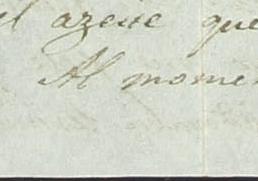 el azeite que
Al mome